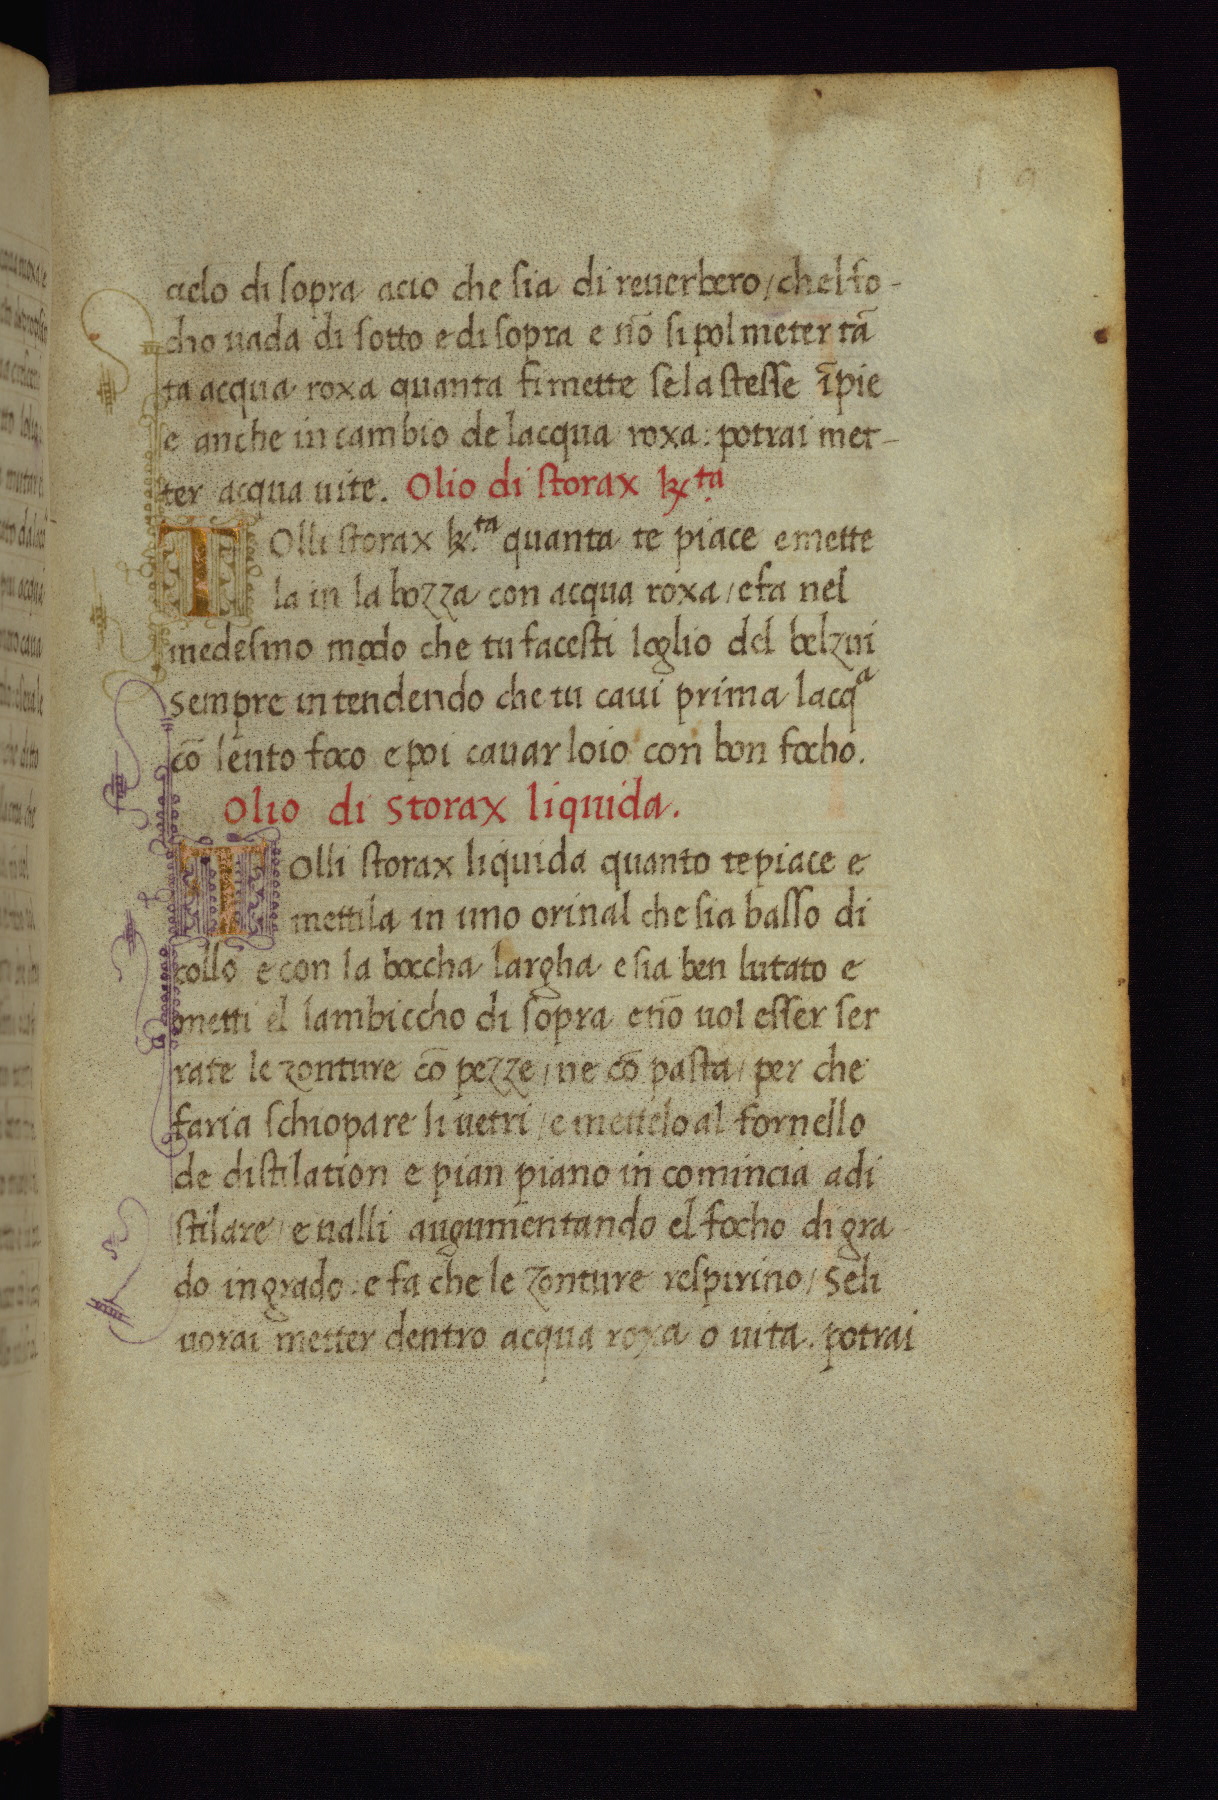 cielo di sopra acio che sia di reuerbero / chel fo-
cho uada di sotto e di sopra e nō si pol meter tā
ta acqua roxa quanta si mette se la stesse īpie
e anche in cambio de lacqua roxa: potrai met-
ter acqua uite. Olio di storax ꝶta
TOlli storax ꝶ.ta quanta te piace e mette
la in la bozza con acqua roxa / e fa nel
medesimo modo che tu facesti loglio del belzui
sempre intendendo che tu caui prima lacqa
cō lento foco e poi cauar loio con bon focho.
Olio di storax liquida.
TOlli storax liquida quanto te piace e
mettila in uno orinal che sia basso di
collo e con la boccha largha e sia ben lutato e
metti el lambiccho di sopra e nō uol esser ser
rate le zonture cō pezze / ne cō pasta / per che
faria schiopare li uetri / e mettelo al fornello
de distilation e pian piano in comincia a di
stilare / e ualli augumentando el focho di gra
do in grado: e fa che le zonture respirino / se li
uorai metter dentro acqua roxa o uita. potrai